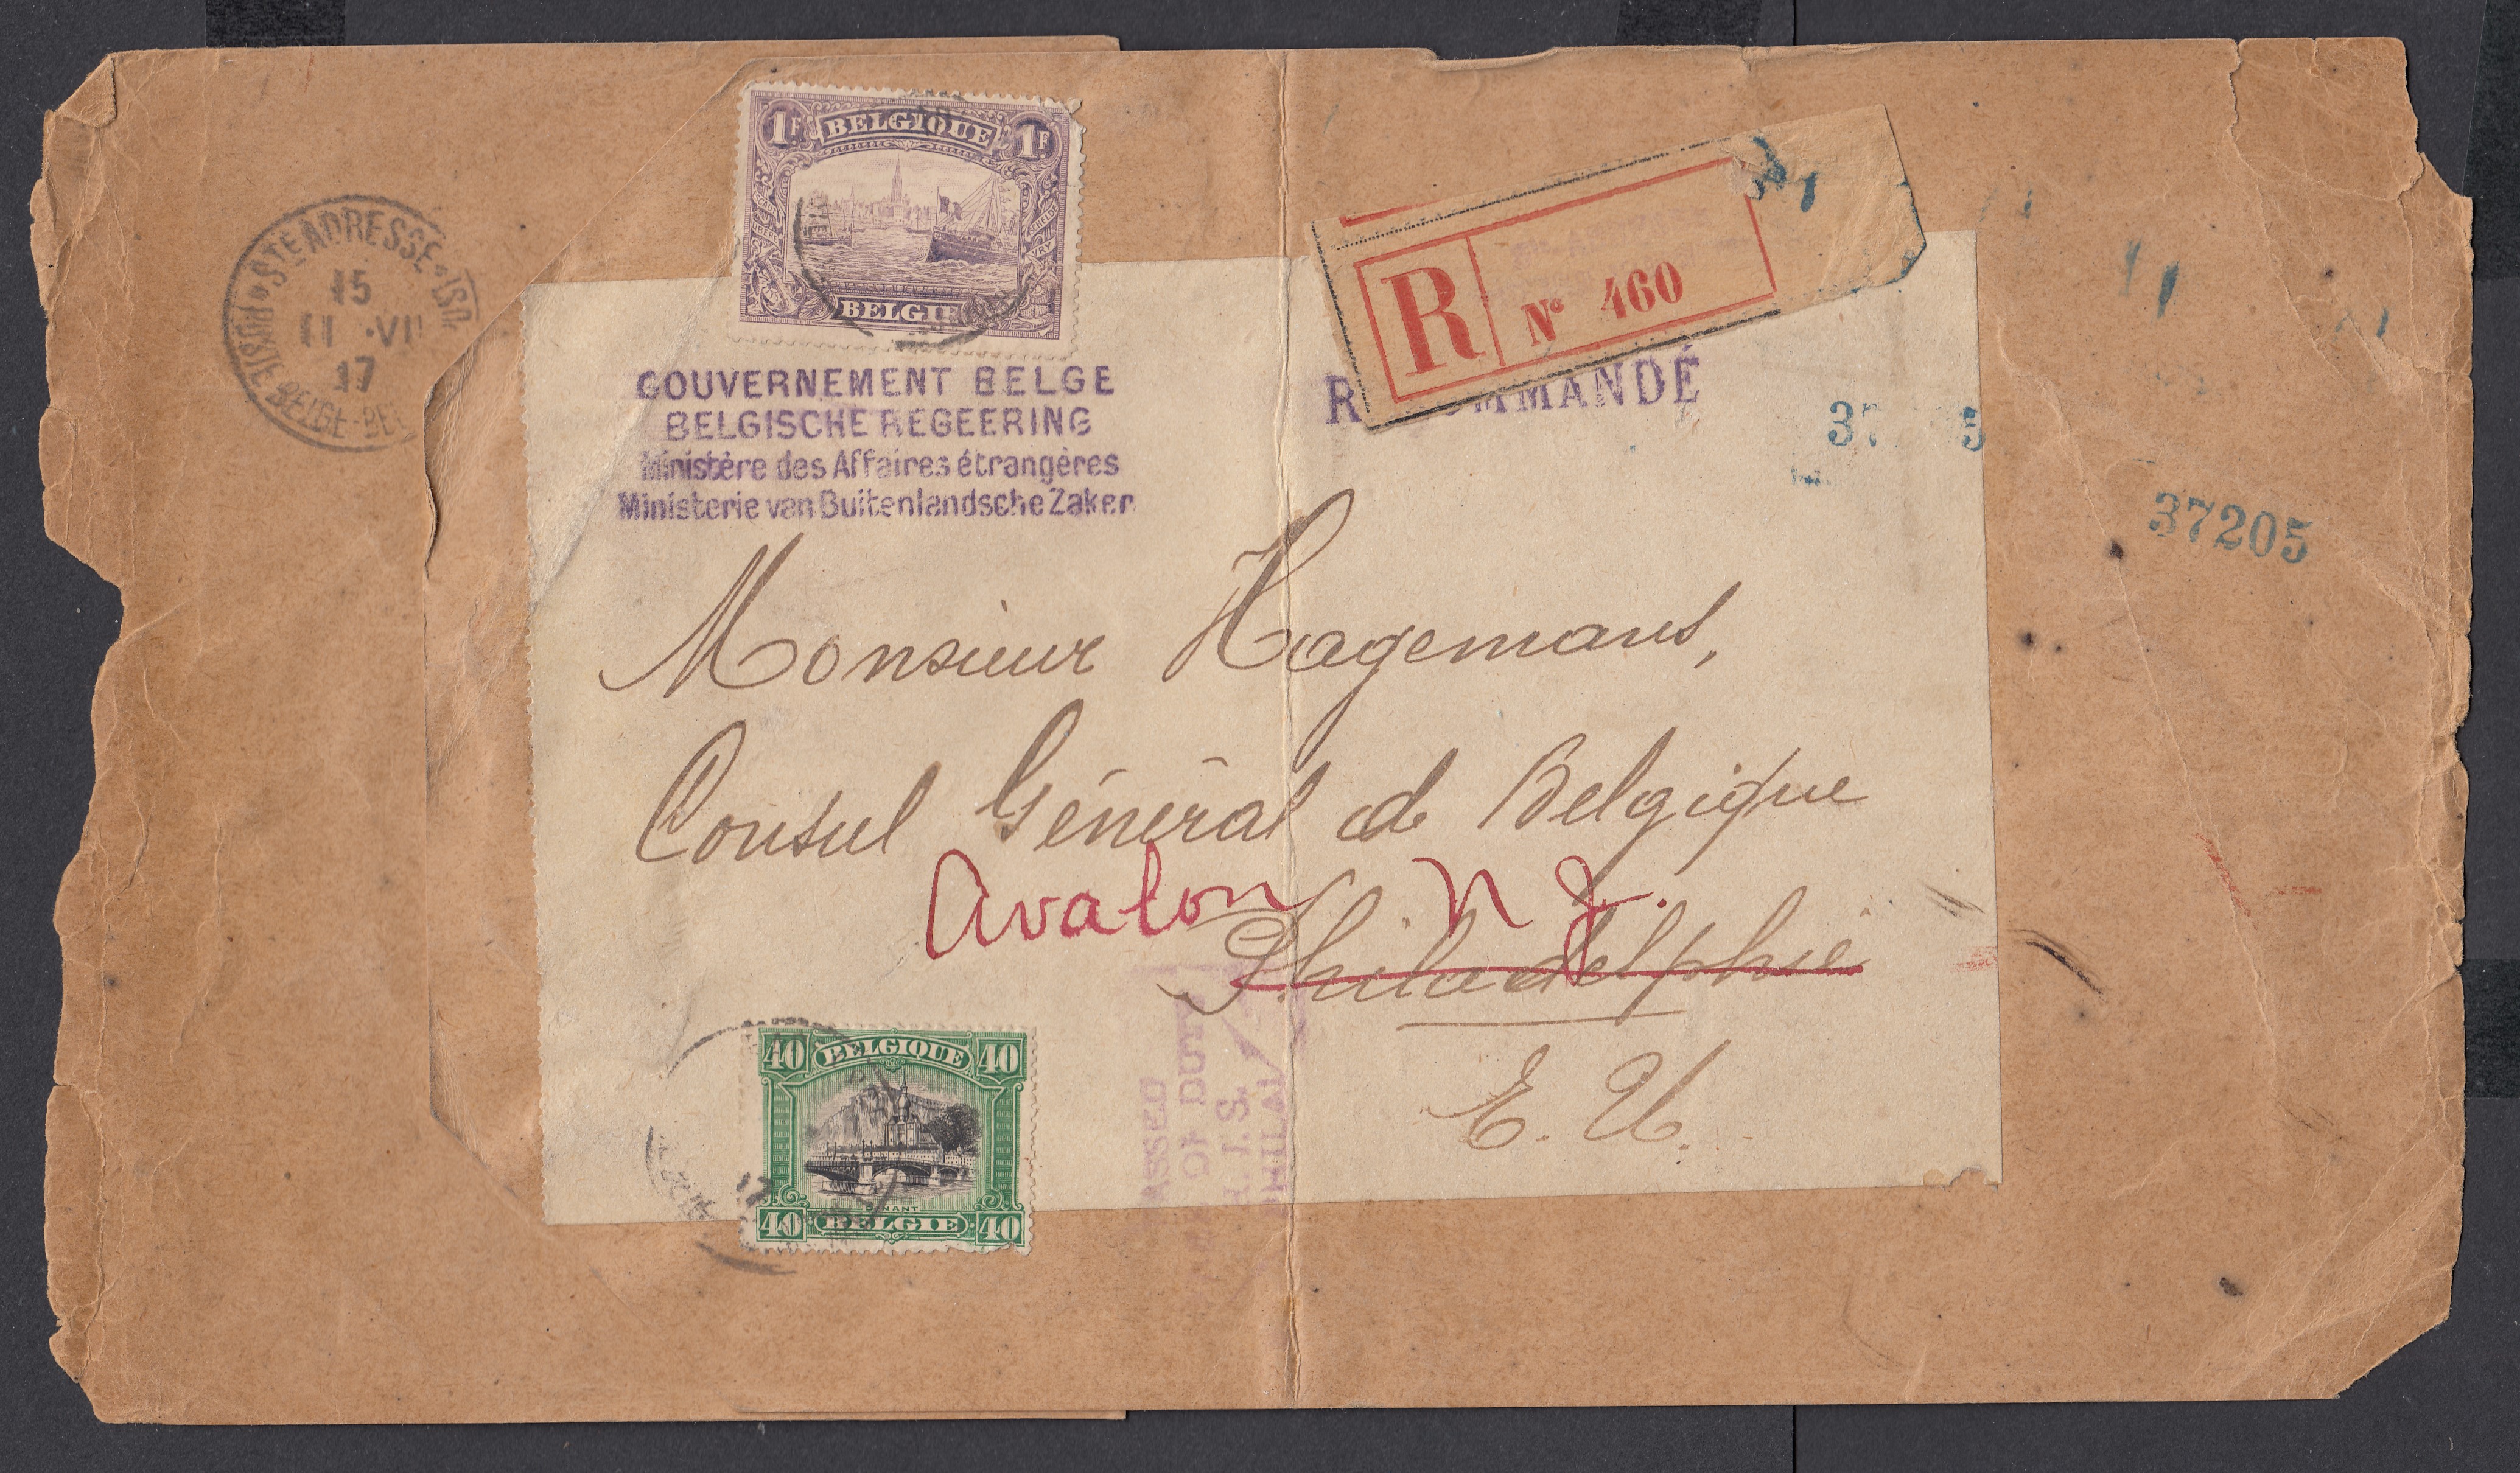 STE ADRESSE
15
11 ·VII
17
POSTE BELGE-BEL
1F BELGIQUE 1F
BELGIE
R
Nº 460
GOUVERNEMENT BELGE
BELGISCHE REGEERING
Ministère des Affaires étrangères
Ministerie van Buitenlandsche Zaken
RECOMMANDÉ
37205
Monsieur Hagemans,
Consul Général de Belgique
Avalon N J.
Philadelphie
E. U.
40 BELGIQUE 40
DINANT
40 BELGIE 40
PASSED
OF DUTY
PHILA
17